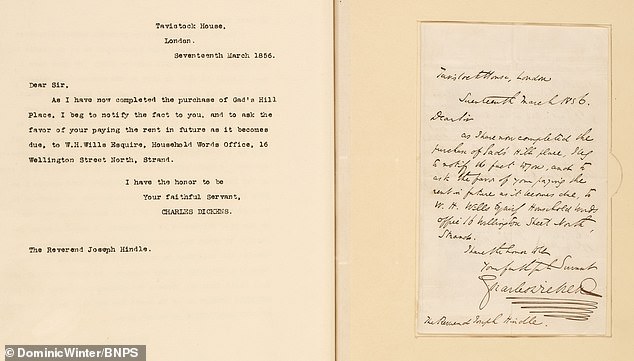 Tavistock House,
London.
Seventeenth March 1856.
Dear Sir,
As I have now completed the purchase of Gad's Hill
Place, I beg to notify the fact to you, and to ask the
favor of your paying the rent in future as it becomes
due, to W.H.Wills Esquire, Household Words Office, 16
Wellington Street North, Strand.
I have the honor to be
Your faithful Servant,
CHARLES DICKENS.
The Reverend Joseph Hindle.
Tavistock House, London
Seventeenth March 1856.
Dear Sir
As I have now completed the
purchase of Gad's Hill place, I beg
to notify the fact to you, and to
ask the favor of your paying the
rent in future as it becomes due, to
W. H. Wills Esquire Household Words
office 16 Wellington Street North,
Strand.
I have the honor to be
Your faithful Servant
Charles Dickens
The Reverend Joseph Hindle.
© DominicWinter/BNPS